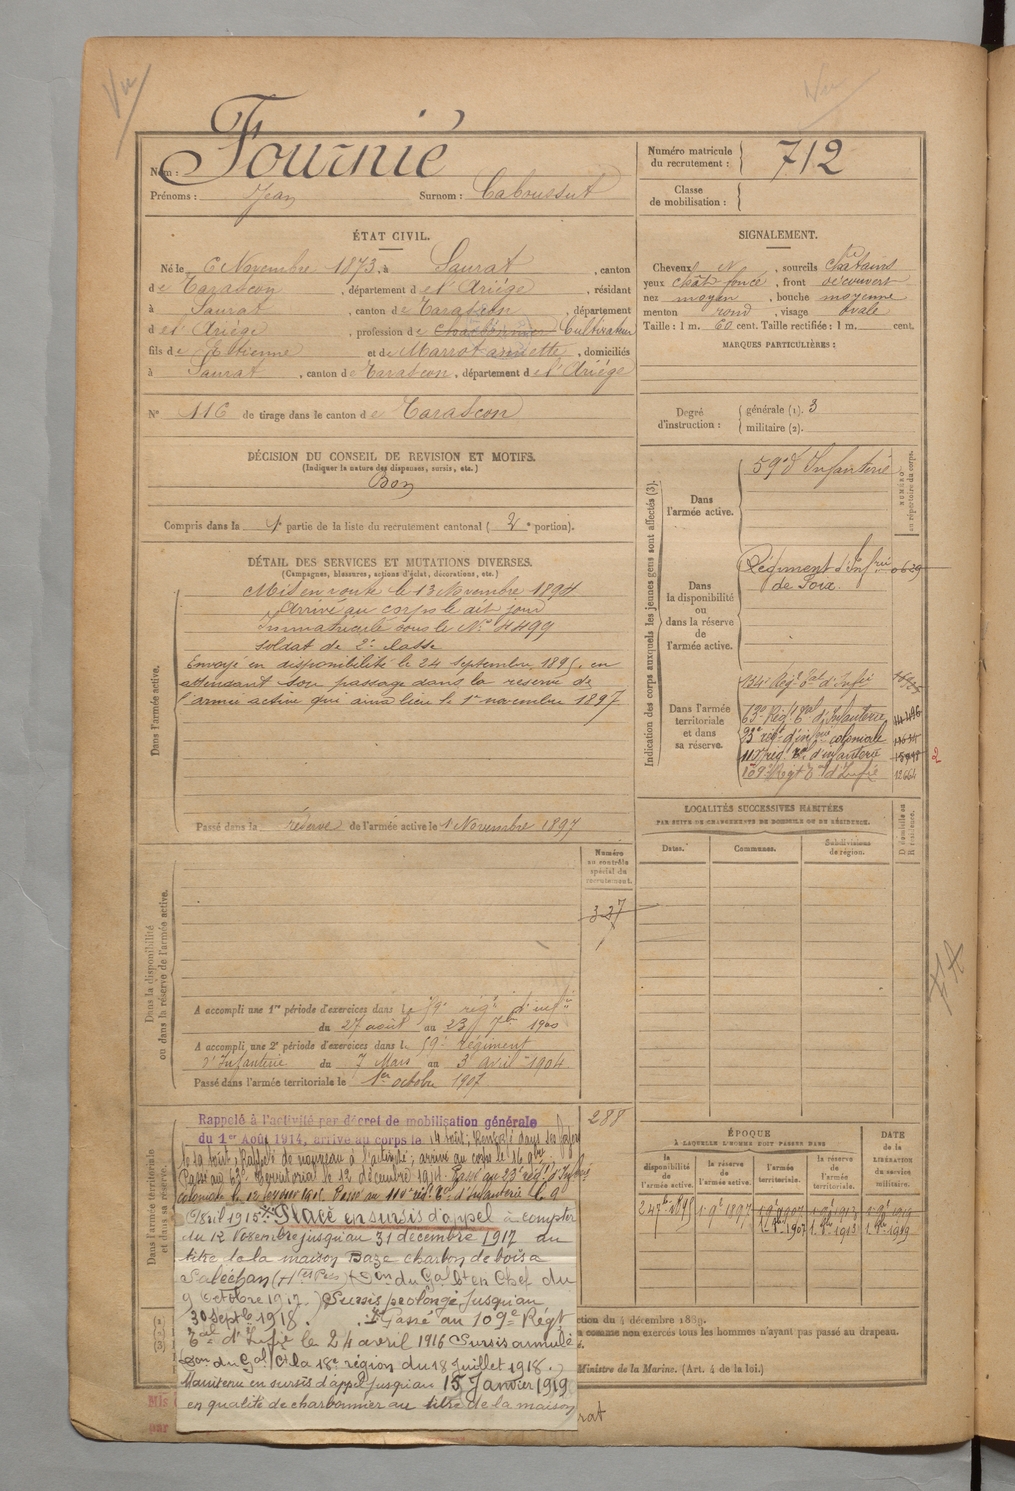 Vu
Vu
Nom : Fournié
Prénoms : Jean Surnom : Caboussut
Numéro matricule du recrutement : 712
Classe de mobilisation :
ÉTAT CIVIL.
Né le 6 Novembre 1873, à Saurat, canton
de Tarascon, département de l'Ariége, résidant
à Saurat, canton de Tarascon, département
de l'Ariége, profession de Charbonnier Cultivateur
fils de Etienne et de Marrot annette, domiciliés
à Saurat, canton de Tarascon, département de l'Ariége
N° 116 de tirage dans le canton de Tarascon
SIGNALEMENT.
Cheveux N, sourcils Châtains
yeux chât foncé, front découvert
nez moyen, bouche moyenne
menton rond, visage ovale
Taille : 1 m. 60 cent. Taille rectifiée : 1 m. cent.
MARQUES PARTICULIÈRES :
Degré d'instruction :
générale (1). 3
militaire (2).
DÉCISION DU CONSEIL DE REVISION ET MOTIFS.
(Indiquer la nature des dispenses, sursis, etc.)
Bon
Compris dans la 1e partie de la liste du recrutement cantonal (2e portion).
DÉTAIL DES SERVICES ET MUTATIONS DIVERSES.
(Campagnes, blessures, actions d'éclat, décorations, etc.)
Dans l'armée active.
Mis en route le 13 Novembre 1894
Arrivé au corps le dit jour
Immatriculé sous le N° 4499
soldat de 2e classe
Envoyé en disponibilité le 24 septembre 1895, en
attendant son passage dans la réserve de
l'armée active qui aura lieu le 1er novembre 1897
Passé dans la réserve de l'armée active le 1 Novembre 1897
Indication des corps auxquels les jeunes gens sont affectés (3).
NUMÉRO au répertoire du corps.
Dans l'armée active.
59e d'Infanterie
Dans la disponibilité ou dans la réserve de l'armée active.
Régiment d'Infrie 0639
de Foix
Dans l'armée territoriale et dans sa réserve.
134e Régt tal d'Infie
63e Régt tal d'Infanterie
23e régt d'infrie coloniale
110e régt tal d'infanterie
109e Régt tal d'Infie 12664
2
LOCALITÉS SUCCESSIVES HABITÉES
PAR SUITE DE CHANGEMENTS DE DOMICILE OU DE RÉSIDENCE.
Dates. Communes. Subdivisions de région.
D domicile ou R résidence.
Dans la disponibilité ou dans la réserve de l'armée active.
Numéro au contrôle spécial du recrutement.
327
A accompli une 1re période d'exercices dans le 59e régt d'infie
du 27 août au 23 7bre 1900
A accompli une 2e période d'exercices dans le 59e régiment
d'Infanterie du 7 Mars au 3 avril 1904
Passé dans l'armée territoriale le 1er octobre 1907
Dans l'armée territoriale et dans sa réserve.
288
Rappelé à l'activité par décret de mobilisation générale
du 1er Août 1914, arrivé au corps le 14 août; Renvoyé dans ses foyers
le août; Rappelé de nouveau à l'activité; arrivé au corps le 16 9bre
Passé au 63e territorial le 12 décembre 1914. Passé au 23e régt d'Infrie
coloniale le 12 février 1915 Passé au 110e régt tal d'infanterie le 9
Avril 1915. Placé en sursis d'appel à compter
du 12 Novembre jusqu'au 31 décembre 1917 au
titre de la maison Baze charbon de bois à
Saléchan (Htes Pées) (Son du Gal Ct en Chef du
9 Octobre 1917.) Sursis prolongé jusqu'au
30 Septbre 1918. Passé au 109e Régt
Tal d'Infie le 24 avril 1916 Sursis annulé
Don du Gal Ct la 18e région du 18 Juillet 1918.
Maintenu en sursis d'appel jusqu'au 15 Janvier 1919
en qualité de charbonnier au titre de la maison
ÉPOQUE
À LAQUELLE L'HOMME DOIT PASSER DANS
la disponibilité de l'armée active.
la réserve de l'armée active.
l'armée territoriale.
la réserve de l'armée territoriale.
DATE de la LIBÉRATION du service militaire.
24 7b 1895 1 9b 1897 1 9b 1907 1 9b 1913 1 9b 1919
1er 8bre 1907 1 8bre 1913 1 8bre 1919
ction du 4 décembre 1889.
comme non exercés tous les hommes n'ayant pas passé au drapeau.
Ministre de la Marine. (Art. 4 de la loi.)
Mis
par
rat